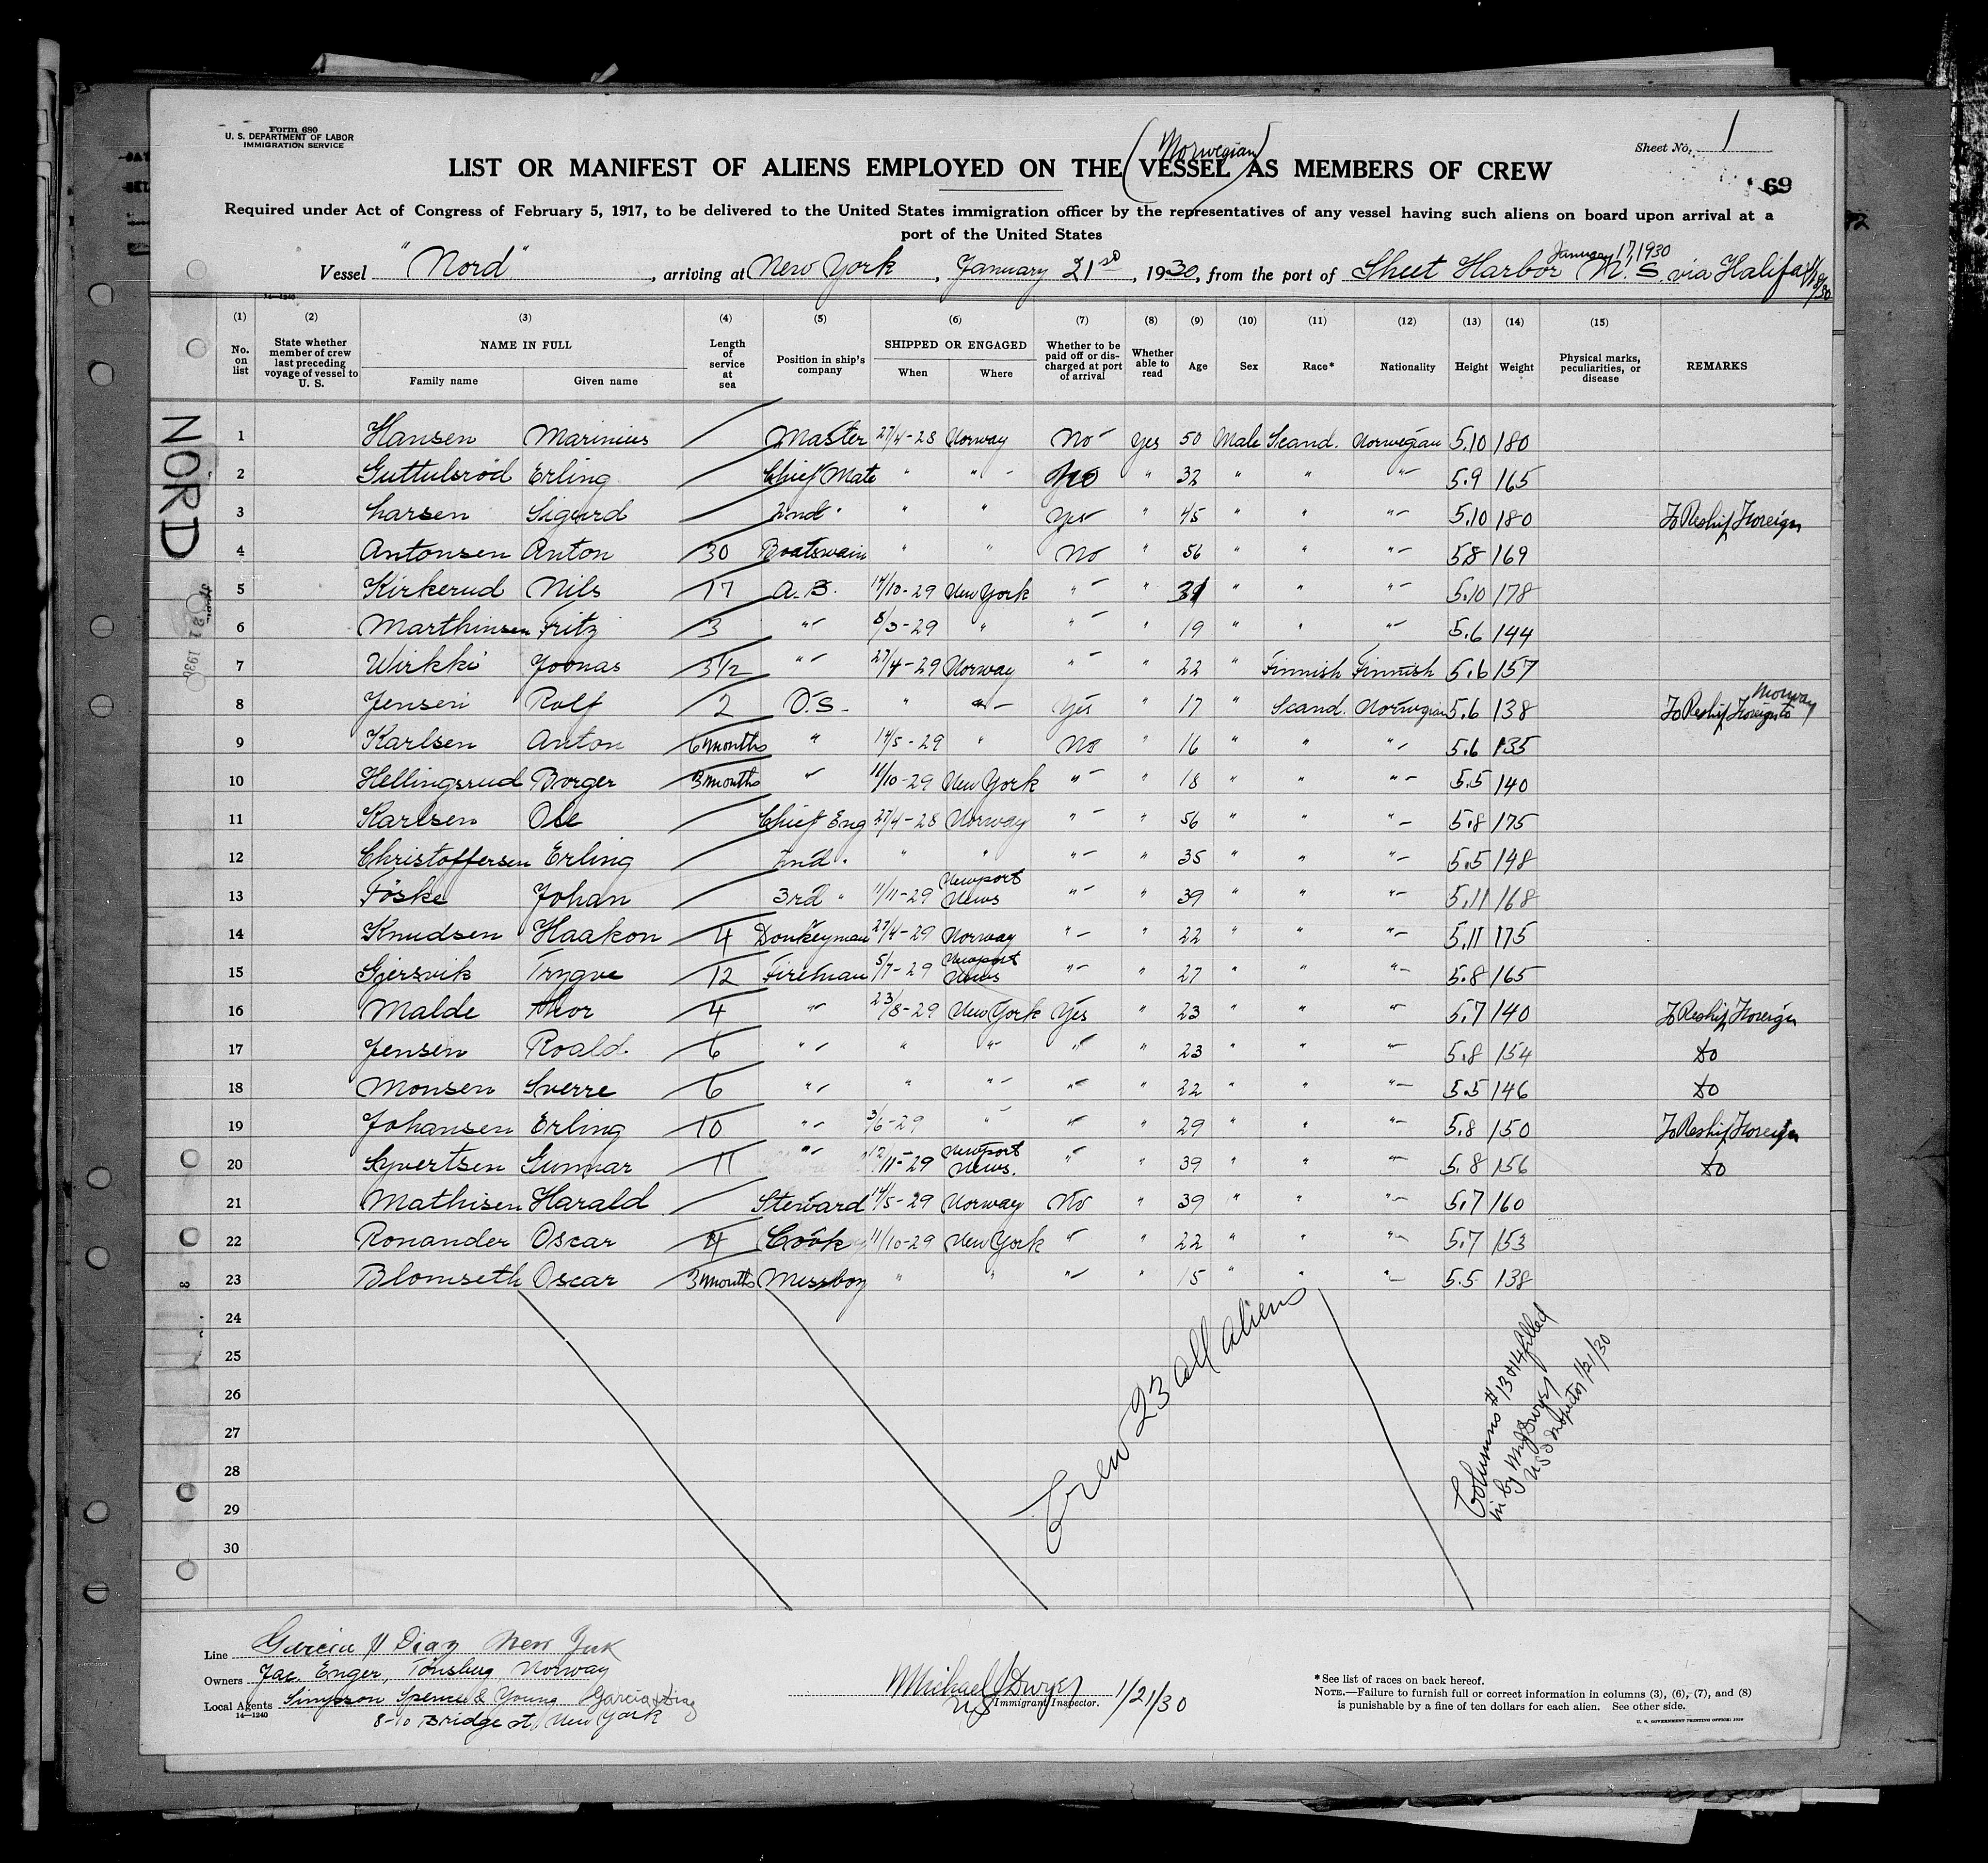 Form 680
U. S. DEPARTMENT OF LABOR
IMMIGRATION SERVICE
Sheet No. 1
69
(Norwegian)
LIST OR MANIFEST OF ALIENS EMPLOYED ON THE VESSEL AS MEMBERS OF CREW
Required under Act of Congress of February 5, 1917, to be delivered to the United States immigration officer by the representatives of any vessel having such aliens on board upon arrival at a
port of the United States
January 17, 1930
Vessel "Nord", arriving at New York, January 21st, 1930, from the port of Sheet Harbor N.S. via Halifax 1/18/30
14—1240
(1) (2) (3) (4) (5) (6) (7) (8) (9) (10) (11) (12) (13) (14) (15)
No. on list | State whether member of crew last preceding voyage of vessel to U. S. | NAME IN FULL | Length of service at sea | Position in ship's company | SHIPPED OR ENGAGED | Whether to be paid off or discharged at port of arrival | Whether able to read | Age | Sex | Race* | Nationality | Height | Weight | Physical marks, peculiarities, or disease | REMARKS
Family name | Given name | When | Where
NORD
1 Hansen Marinius / Master 27/4-28 Norway No Yes 50 Male Scand. Norwegian 5.10 180
2 Guttulsröd Erling / Chief Mate " " No " 32 " " " 5.9 165
3 Larsen Sigurd / 2nd " " " Yes " 45 " " " 5.10 180 To Reship Foreign
4 Antonsen Anton 30 Boatswain " " No " 56 " " " 5.8 169
5 Kirkerud Nils 17 A.B. 14/10-29 New York " " 31 " " " 5.10 178
6 Marthinsen Fritz 3 " 8/3-29 " " " 19 " " " 5.6 144
7 Wirkki Joonas 3 1/2 " 27/4-29 Norway " " 22 " Finnish Finnish 5.6 157
8 Jensen Rolf 2 O.S. " " Yes " 17 " Scand. Norwegian 5.6 138 To Reship Foreign to Norway
9 Karlsen Anton 6 months " 14/5-29 " No " 16 " " " 5.6 135
10 Hellingsrud Borger 3 months " 11/10-29 New York " " 18 " " " 5.5 140
11 Karlsen Ole / Chief Eng. 27/4-28 Norway " " 56 " " " 5.8 175
12 Christoffersen Erling / 2nd " " " " " 35 " " " 5.5 148
13 Föske Johan / 3rd " 11/11-29 Newport News " " 39 " " " 5.11 168
14 Knudsen Haakon 4 Donkeyman 27/4-29 Norway " " 22 " " " 5.11 175
15 Gjersvik Trygve 12 Fireman 5/7-29 Newport News " " 27 " " " 5.8 165
16 Malde Thor 4 " 23/8-29 New York Yes " 23 " " " 5.7 140 To Reship Foreign
17 Jensen Roald. 6 " " " " " 23 " " " 5.8 154 do
18 Monsen Sverre 6 " " " " " 22 " " " 5.5 146 do
19 Johansen Erling 10 " 3/6-29 " " " 29 " " " 5.8 150 To Reship Foreign
20 Syvertsen Gunnar 11 " 12/11-29 Newport News. " " 39 " " " 5.8 156 do
21 Mathisen Harald / Steward 14/5-29 Norway No " 39 " " " 5.7 160
22 Ronander Oscar 4 Cook 11/10-29 New York " " 22 " " " 5.7 153
23 Blomseth Oscar 3 months Messboy " " " " 15 " " " 5.5 138
24
25
26
27
28
29
30
Crew 23 all aliens
Columns #13 & 14 filled
in by M J Dwyer
US Inspector 1/21/30
Line Garcia & Diaz New York
Owners Jac. Enger, Tönsberg, Norway
Local Agents Simpson Spence & Young Garcia & Diaz
14—1240
8-10 Bridge st, New York
Michael J Dwyer
US Immigrant Inspector. 1/21/30
*See list of races on back hereof.
NOTE.—Failure to furnish full or correct information in columns (3), (6), (7), and (8)
is punishable by a fine of ten dollars for each alien. See other side.
U. S. GOVERNMENT PRINTING OFFICE: 1929